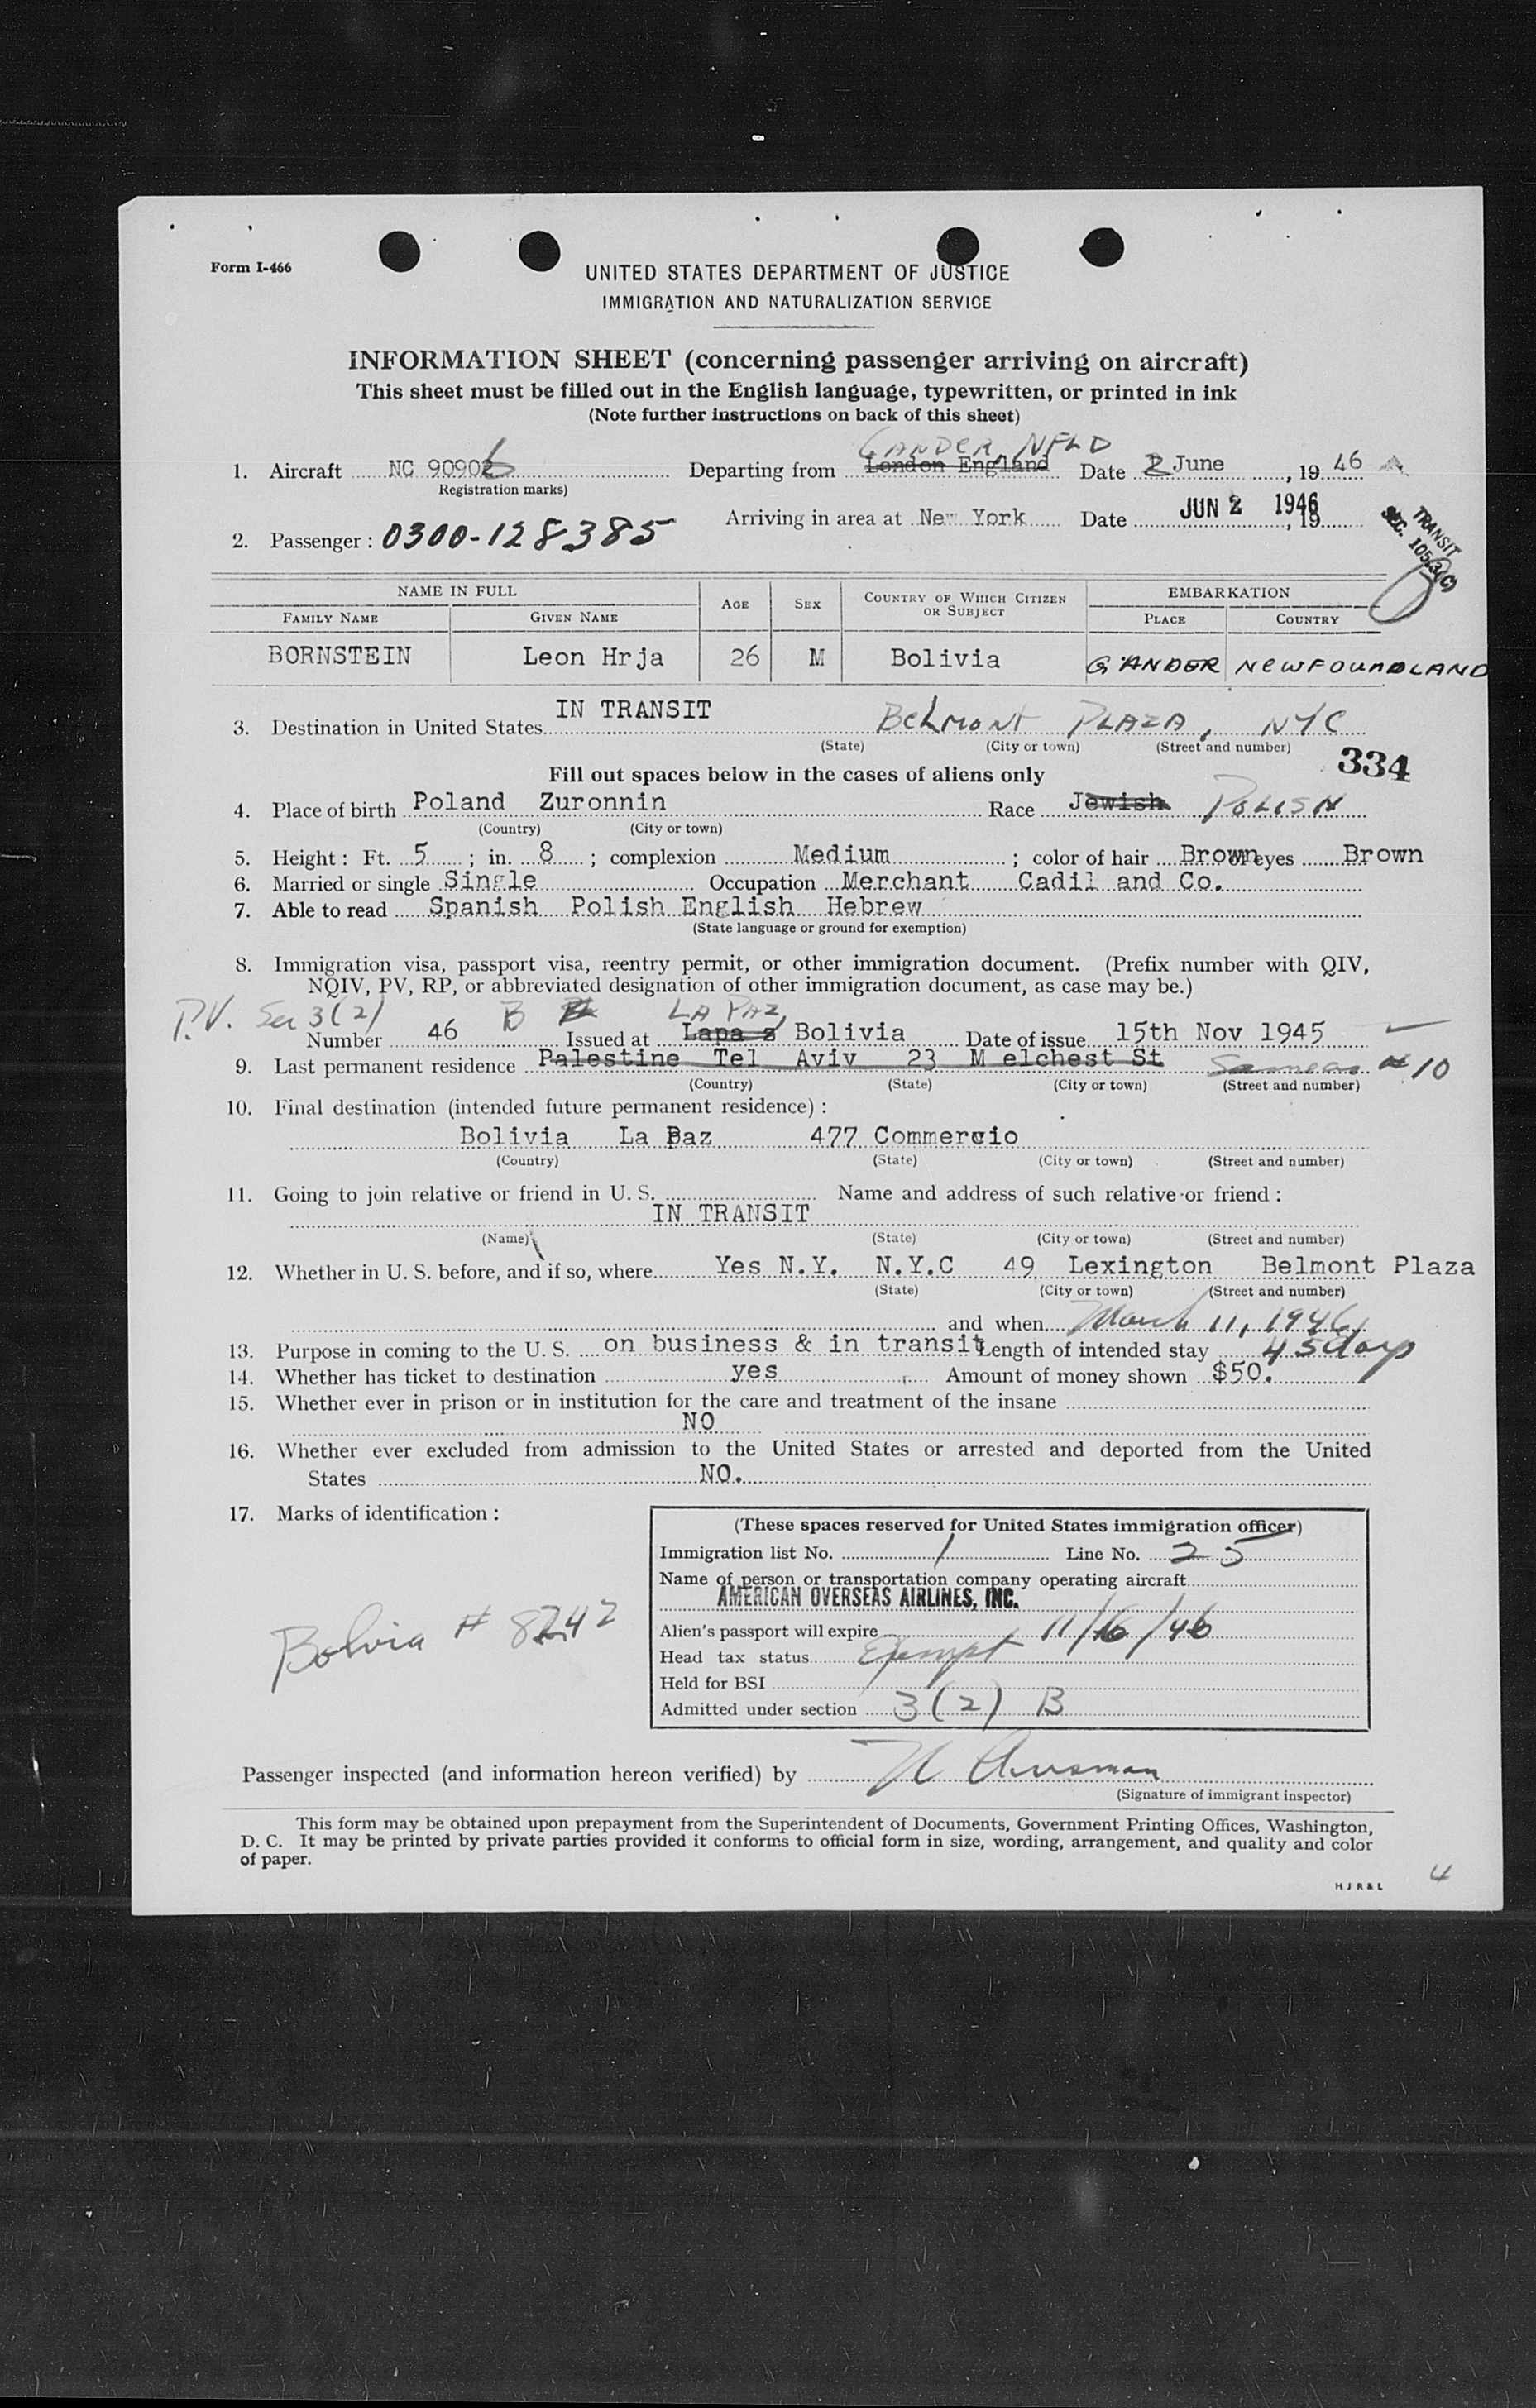 Form I-466
UNITED STATES DEPARTMENT OF JUSTICE
IMMIGRATION AND NATURALIZATION SERVICE
INFORMATION SHEET (concerning passenger arriving on aircraft)
This sheet must be filled out in the English language, typewritten, or printed in ink
(Note further instructions on back of this sheet)
GANDER NFLD
1. Aircraft NC 90906 Departing from London England Date 2 June , 19 46
(Registration marks)
Arriving in area at New York Date JUN 2 1946 , 19
TRANSIT
SEC. 105.3(C)
2. Passenger : 0300-128385
NAME IN FULL AGE SEX COUNTRY OF WHICH CITIZEN OR SUBJECT EMBARKATION
FAMILY NAME GIVEN NAME PLACE COUNTRY
BORNSTEIN Leon Hrja 26 M Bolivia GANDER NEWFOUNDLAND
3. Destination in United States IN TRANSIT BELMONT PLAZA, NYC
(State) (City or town) (Street and number)
334
Fill out spaces below in the cases of aliens only
4. Place of birth Poland Zuronnin Race Jewish POLISH
(Country) (City or town)
5. Height : Ft. 5 ; in. 8 ; complexion Medium ; color of hair Brown eyes Brown
6. Married or single Single Occupation Merchant Cadil and Co.
7. Able to read Spanish Polish English Hebrew
(State language or ground for exemption)
8. Immigration visa, passport visa, reentry permit, or other immigration document. (Prefix number with QIV,
NQIV, PV, RP, or abbreviated designation of other immigration document, as case may be.)
P.V. Sec 3(2) B LA PAZ,
Number 46 Issued at Lapa z Bolivia Date of issue 15th Nov 1945
9. Last permanent residence Palestine Tel Aviv 23 M elchest St Same as #10
(Country) (State) (City or town) (Street and number)
10. Final destination (intended future permanent residence) :
Bolivia La Paz 477 Commercio
(Country) (State) (City or town) (Street and number)
11. Going to join relative or friend in U. S. Name and address of such relative or friend :
IN TRANSIT
(Name) (State) (City or town) (Street and number)
12. Whether in U. S. before, and if so, where Yes N.Y. N.Y.C 49 Lexington Belmont Plaza
(State) (City or town) (Street and number)
and when March 11, 1946
13. Purpose in coming to the U. S. on business & in transit Length of intended stay 45 days
14. Whether has ticket to destination yes Amount of money shown $50.
15. Whether ever in prison or in institution for the care and treatment of the insane
NO
16. Whether ever excluded from admission to the United States or arrested and deported from the United
States NO.
17. Marks of identification :
Bolivia # 8242
(These spaces reserved for United States immigration officer)
Immigration list No. 1 Line No. 25
Name of person or transportation company operating aircraft
AMERICAN OVERSEAS AIRLINES, INC.
Alien's passport will expire 11/16/46
Head tax status Exempt
Held for BSI
Admitted under section 3(2) B
Passenger inspected (and information hereon verified) by
(Signature of immigrant inspector)
This form may be obtained upon prepayment from the Superintendent of Documents, Government Printing Offices, Washington,
D. C. It may be printed by private parties provided it conforms to official form in size, wording, arrangement, and quality and color
of paper.
H J R & L
4